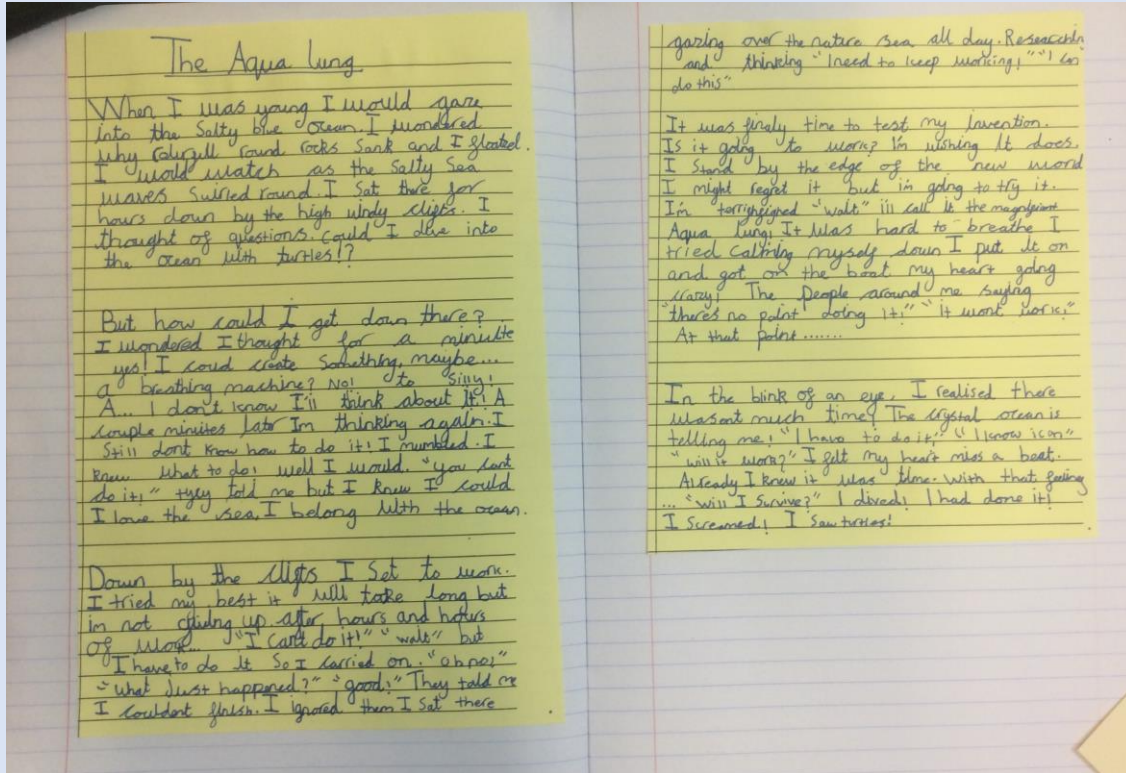 The Aqua lung
When I was young I would gaze
into the Salty blue ocean. I wondered
why round rocks Sank and I floated.
I would watch as the Salty Sea
waves Swirled round. I Sat there for
hours down by the high windy clifts. I
thought of questions. Could I dive into
the ocean with turtles!?
But how could I get down there?
I wondered I thought for a miniute
yes! I coud create Something, maybe...
a breathing machine? No! to Silly!
A... I don't know I'll think about it! A
couple minites later Im thinking again. I
Still dont know how to do it! I mumbled. I
knew what to do! well I would. "you cant
do it!" they told me but I knew I could
I love the sea, I belong with the ocean.
Down by the clifts I Set to work.
I tried my best it will take long but
im not giving up. after hours and hours
of work... "I Can't do it!" "wait" but
I have to do it So I carried on. "oh no!"
"what Just happened?" "good!" They told me
I couldent finish. I ignored them I Sat there
gazing over the nature sea all day. Researchin
and thinking "I need to keep working!" "I can
do this"
It was finaly time to test my invention.
Is it going to work? I'm wishing it does.
I Stand by the edge of the new world
I might regret it but im going to try it.
I'm "wait" ill call it the
Aqua lung! It was hard to breathe I
tried calming myself down I put it on
and got on the boat my heart going
crazy! The people around me saying
"theres no point doing it!" "it wont work!"
At that point.......
In the blink of an eye, I realised there
wasent much time! The crystal ocean is
telling me! "I have to do it!" "I know i can"
"will it work?" I felt my heart miss a beat.
Already I knew it was time. With that feeling
... "will I Survive?" I dived! I had done it!
I Screamed! I Saw turtles!